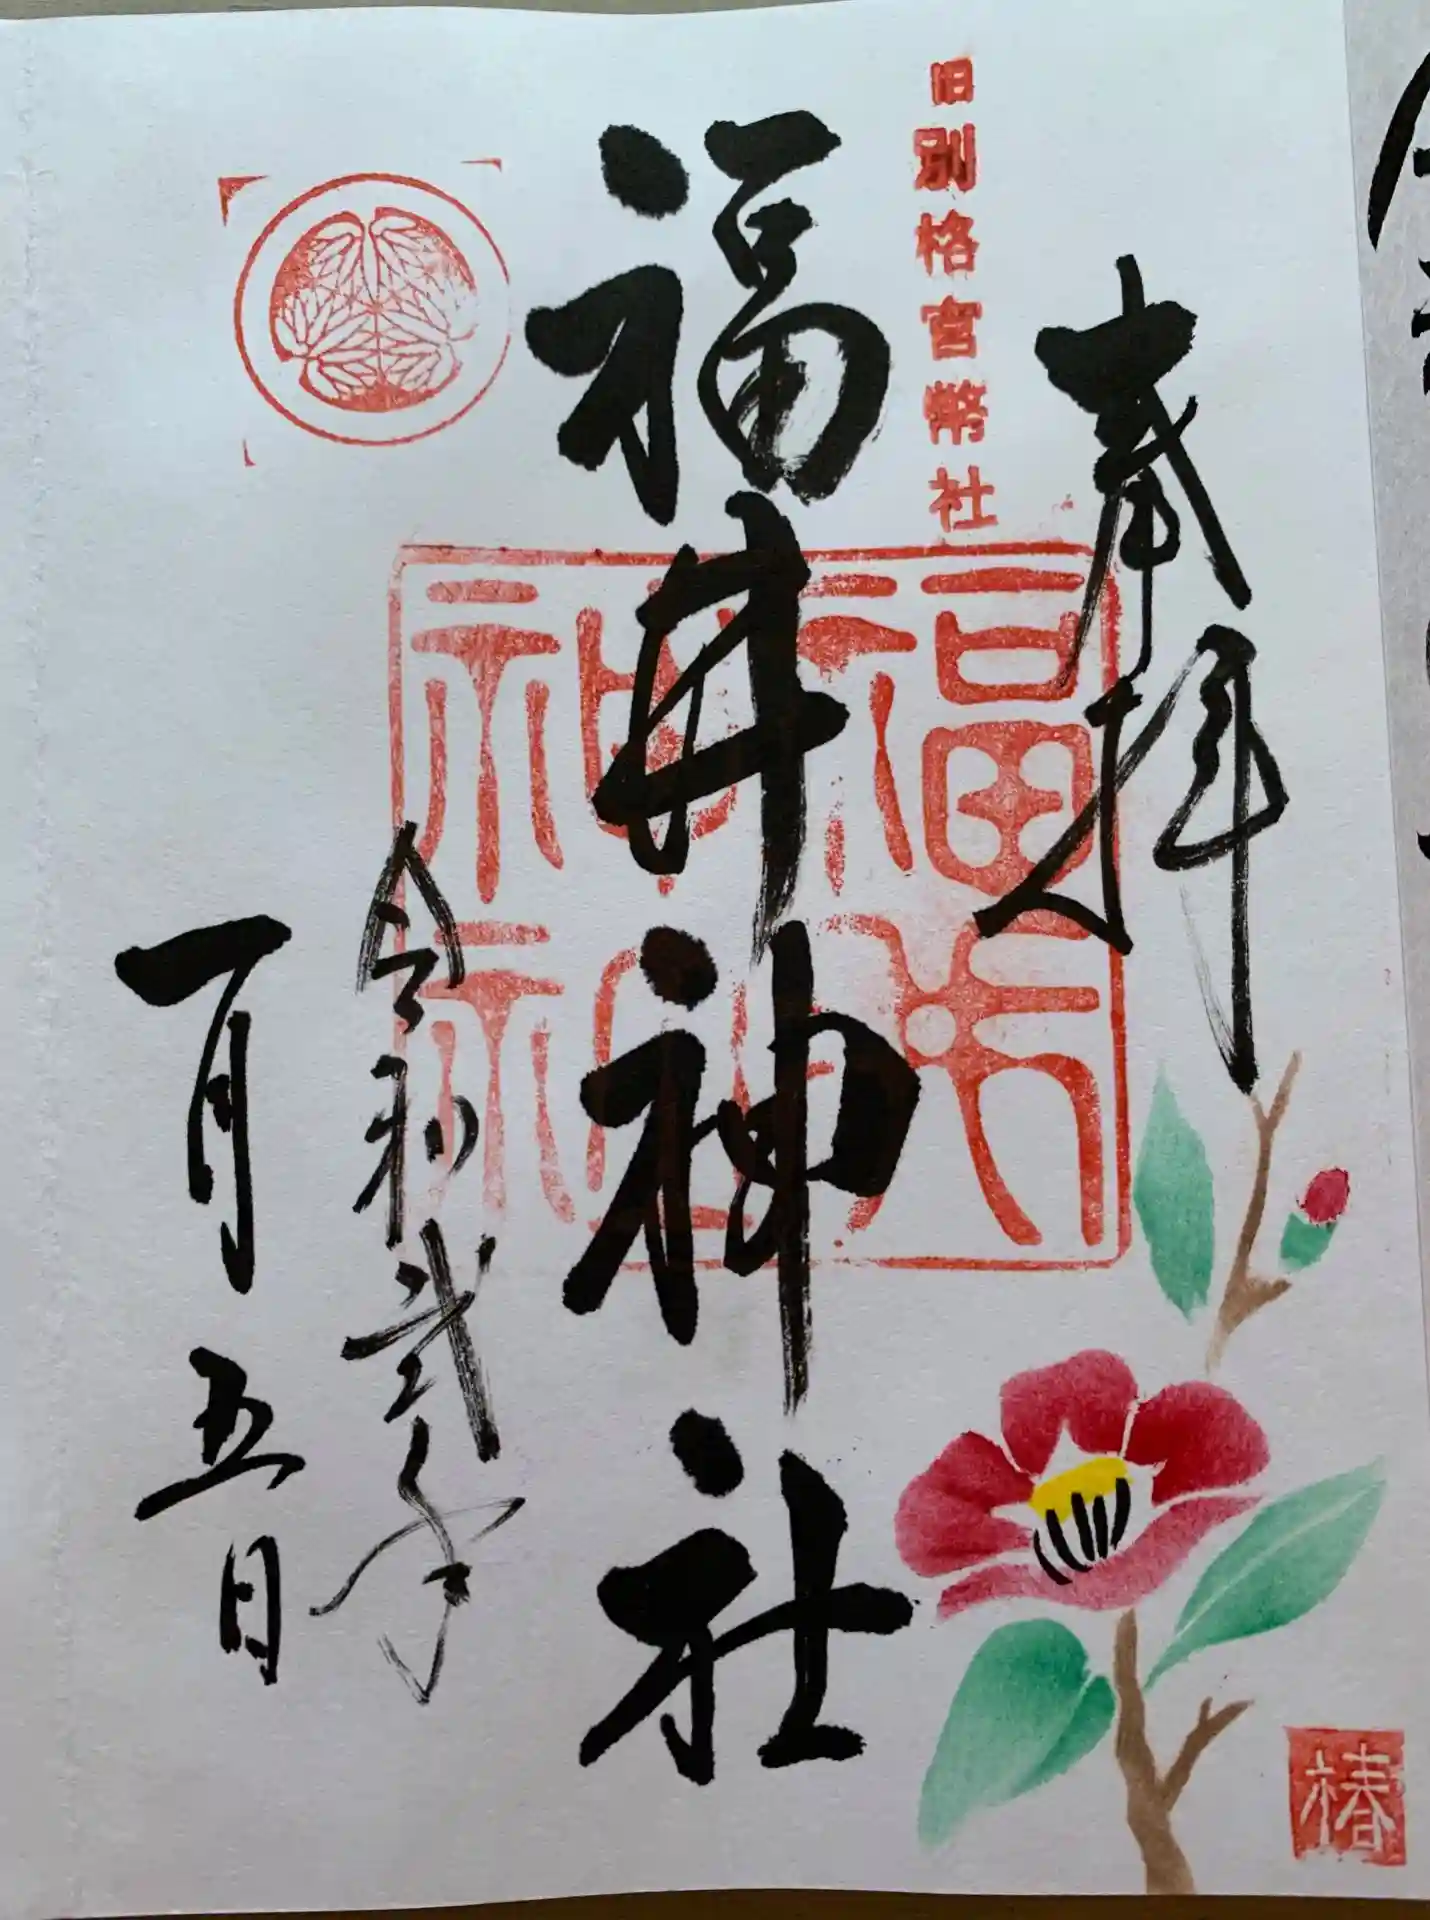 奉拝
旧別格官幣社
福井神社
福井神社
令和弐年
一月五日
椿